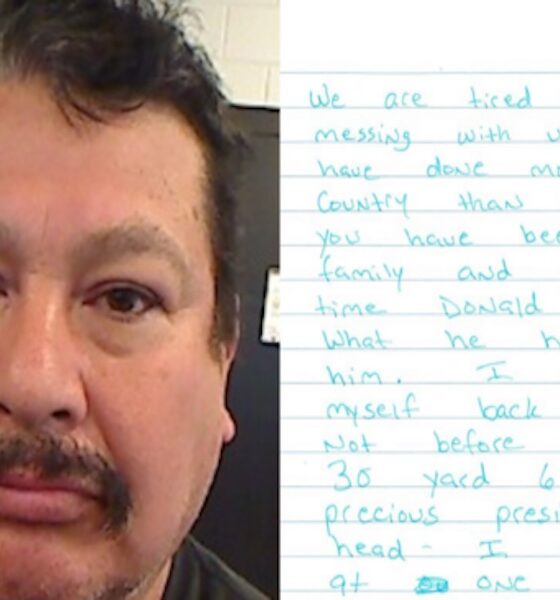 We are tired
messing with u
have done mo
Country than
you have bee
family and
time DONald
What he h
him. I
myself back
Not before
30 yard 6
precious presi
head - I
at ONE